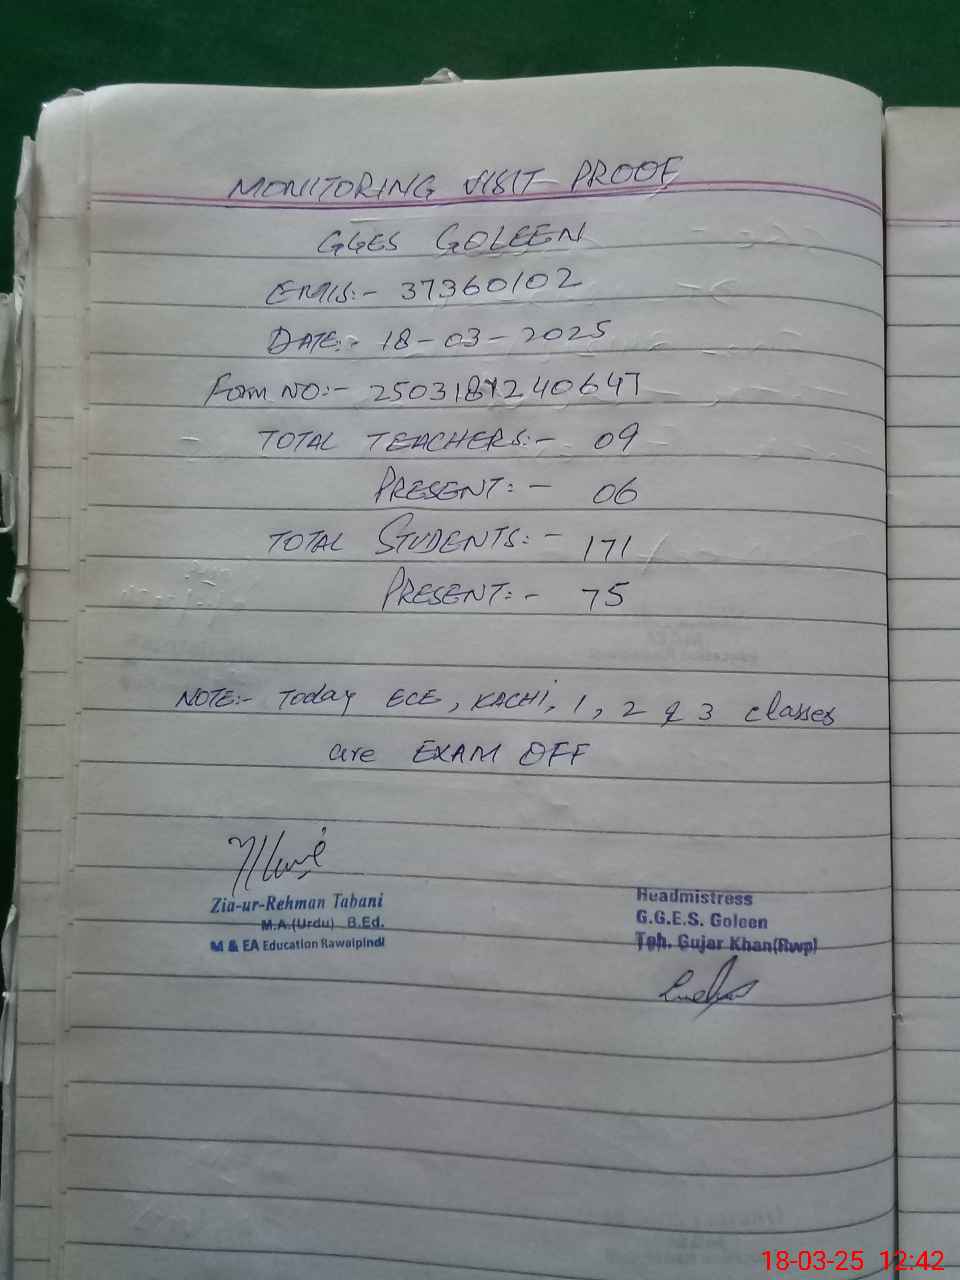 MONITORING VISIT PROOF
GGES GOLEEN
EMIS:- 37360102
DATE:- 18-03-2025
Form NO:-
TOTAL TEACHERS:- 09
PRESENT:- 06
TOTAL STUDENTS:- 171
PRESENT:- 75
NOTE:- Today ECE, KACHI, 1, 2 & 3 classes
are EXAM OFF
Zia-ur-Rehman Tabani
M.A.(Urdu) B.Ed.
M & EA Education Rawalpindi
Headmistress
G.G.E.S. Goleen
Teh. Gujar Khan(Rwp)
18-03-25 12:42